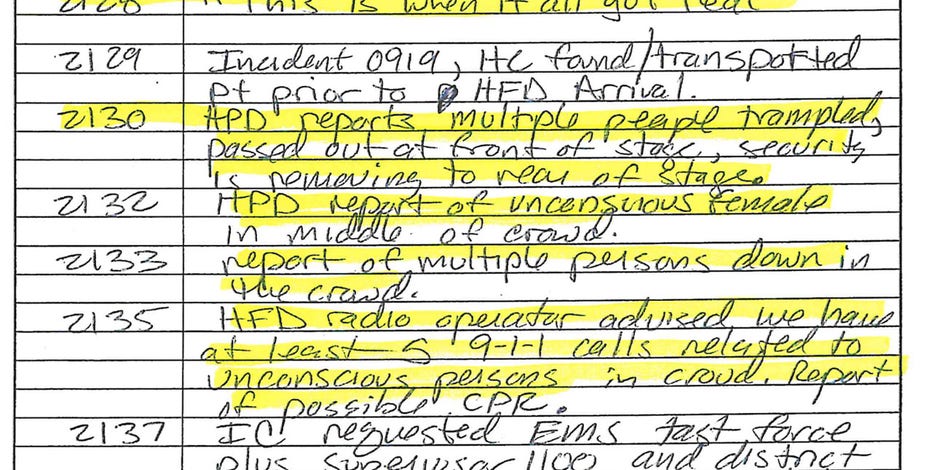 2128 " This is when it all got real "
2129 Incident 0919, HC found/transpotted
pt prior to HFD Arrival.
2130 HPD reports multiple people trampled,
passed out at front of stage, security
is removing to rear of stage.
2132 HPD report of unconscious female
in middle of crowd.
2133 report of multiple persons down in
the crowd.
2135 HFD radio operator advised we have
at least 5 9-1-1 calls related to
unconscious persons in crowd. Report
of possible CPR.
2137 IC requested EMS task force
plus supervisor 1100 and district